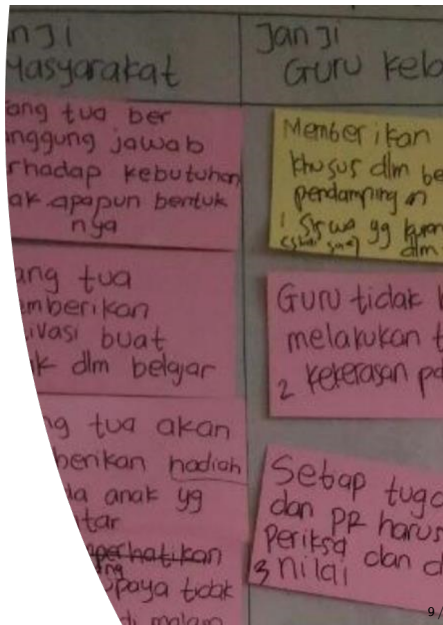 nji
Masyarakat
ang tua ber
nggung jawab
rhadap kebutuhan
ak apapun bentuk
nya
ang tua
emberikan
ivasi buat
k dlm belajar
ng tua akan
berikan hadiah
da anak yg
tar
perhatikan
ng
upaya tidak
di malam
Janji
Guru kela
Memberikan
khusus dlm be
pendamping an
1 Siswa yg kuran
dlm
Guru tidak
melakukan t
2 kekerasan pa
Setiap tuga
dan PR harus
periksa dan d
3 nilai
9/